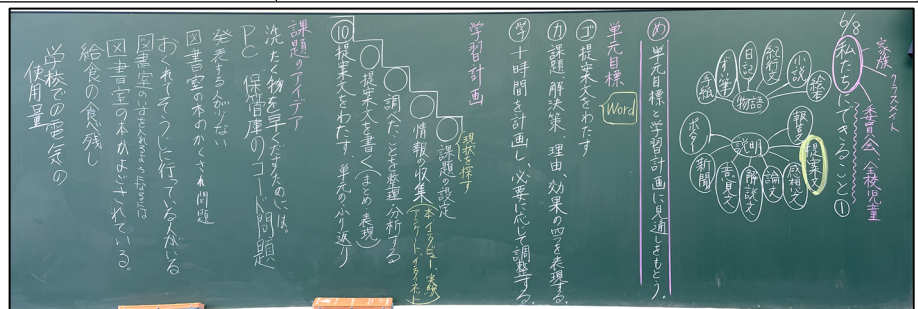 6/8
私たちにできること①
家族
クラスメイト
委員会、全校児童
絵本
小説
紀行文
日記
手紙
物語
報告
提案文
感想文
論文
解説文
意見文
新聞
ポスター
説明
め 単元目標と学習計画に見通しをもとう。
単元目標
提案文をわたす
Word
カ 課題、解決策、理由、効果の四つを表現する。
学 十時間を計画し、必要に応じて調整する。
学習計画
現状を探す
課題の設定
情報の収集(本・インタビュー、実験
アンケート、インターネット)
調べたことを整理・分析する
提案文を書く(まとめ・表現)
⑩提案文をわたす、単元のふり返り
課題のアイデア
洗たく物を早くかわかすためには、
PC保管庫のコード問題
発表する人が少ない
図書室の本のかくされ問題
おくれてそうじに行っている人がいる
図書室の本がよごされている。
給食の食べ残し
学校での電気の
使用量